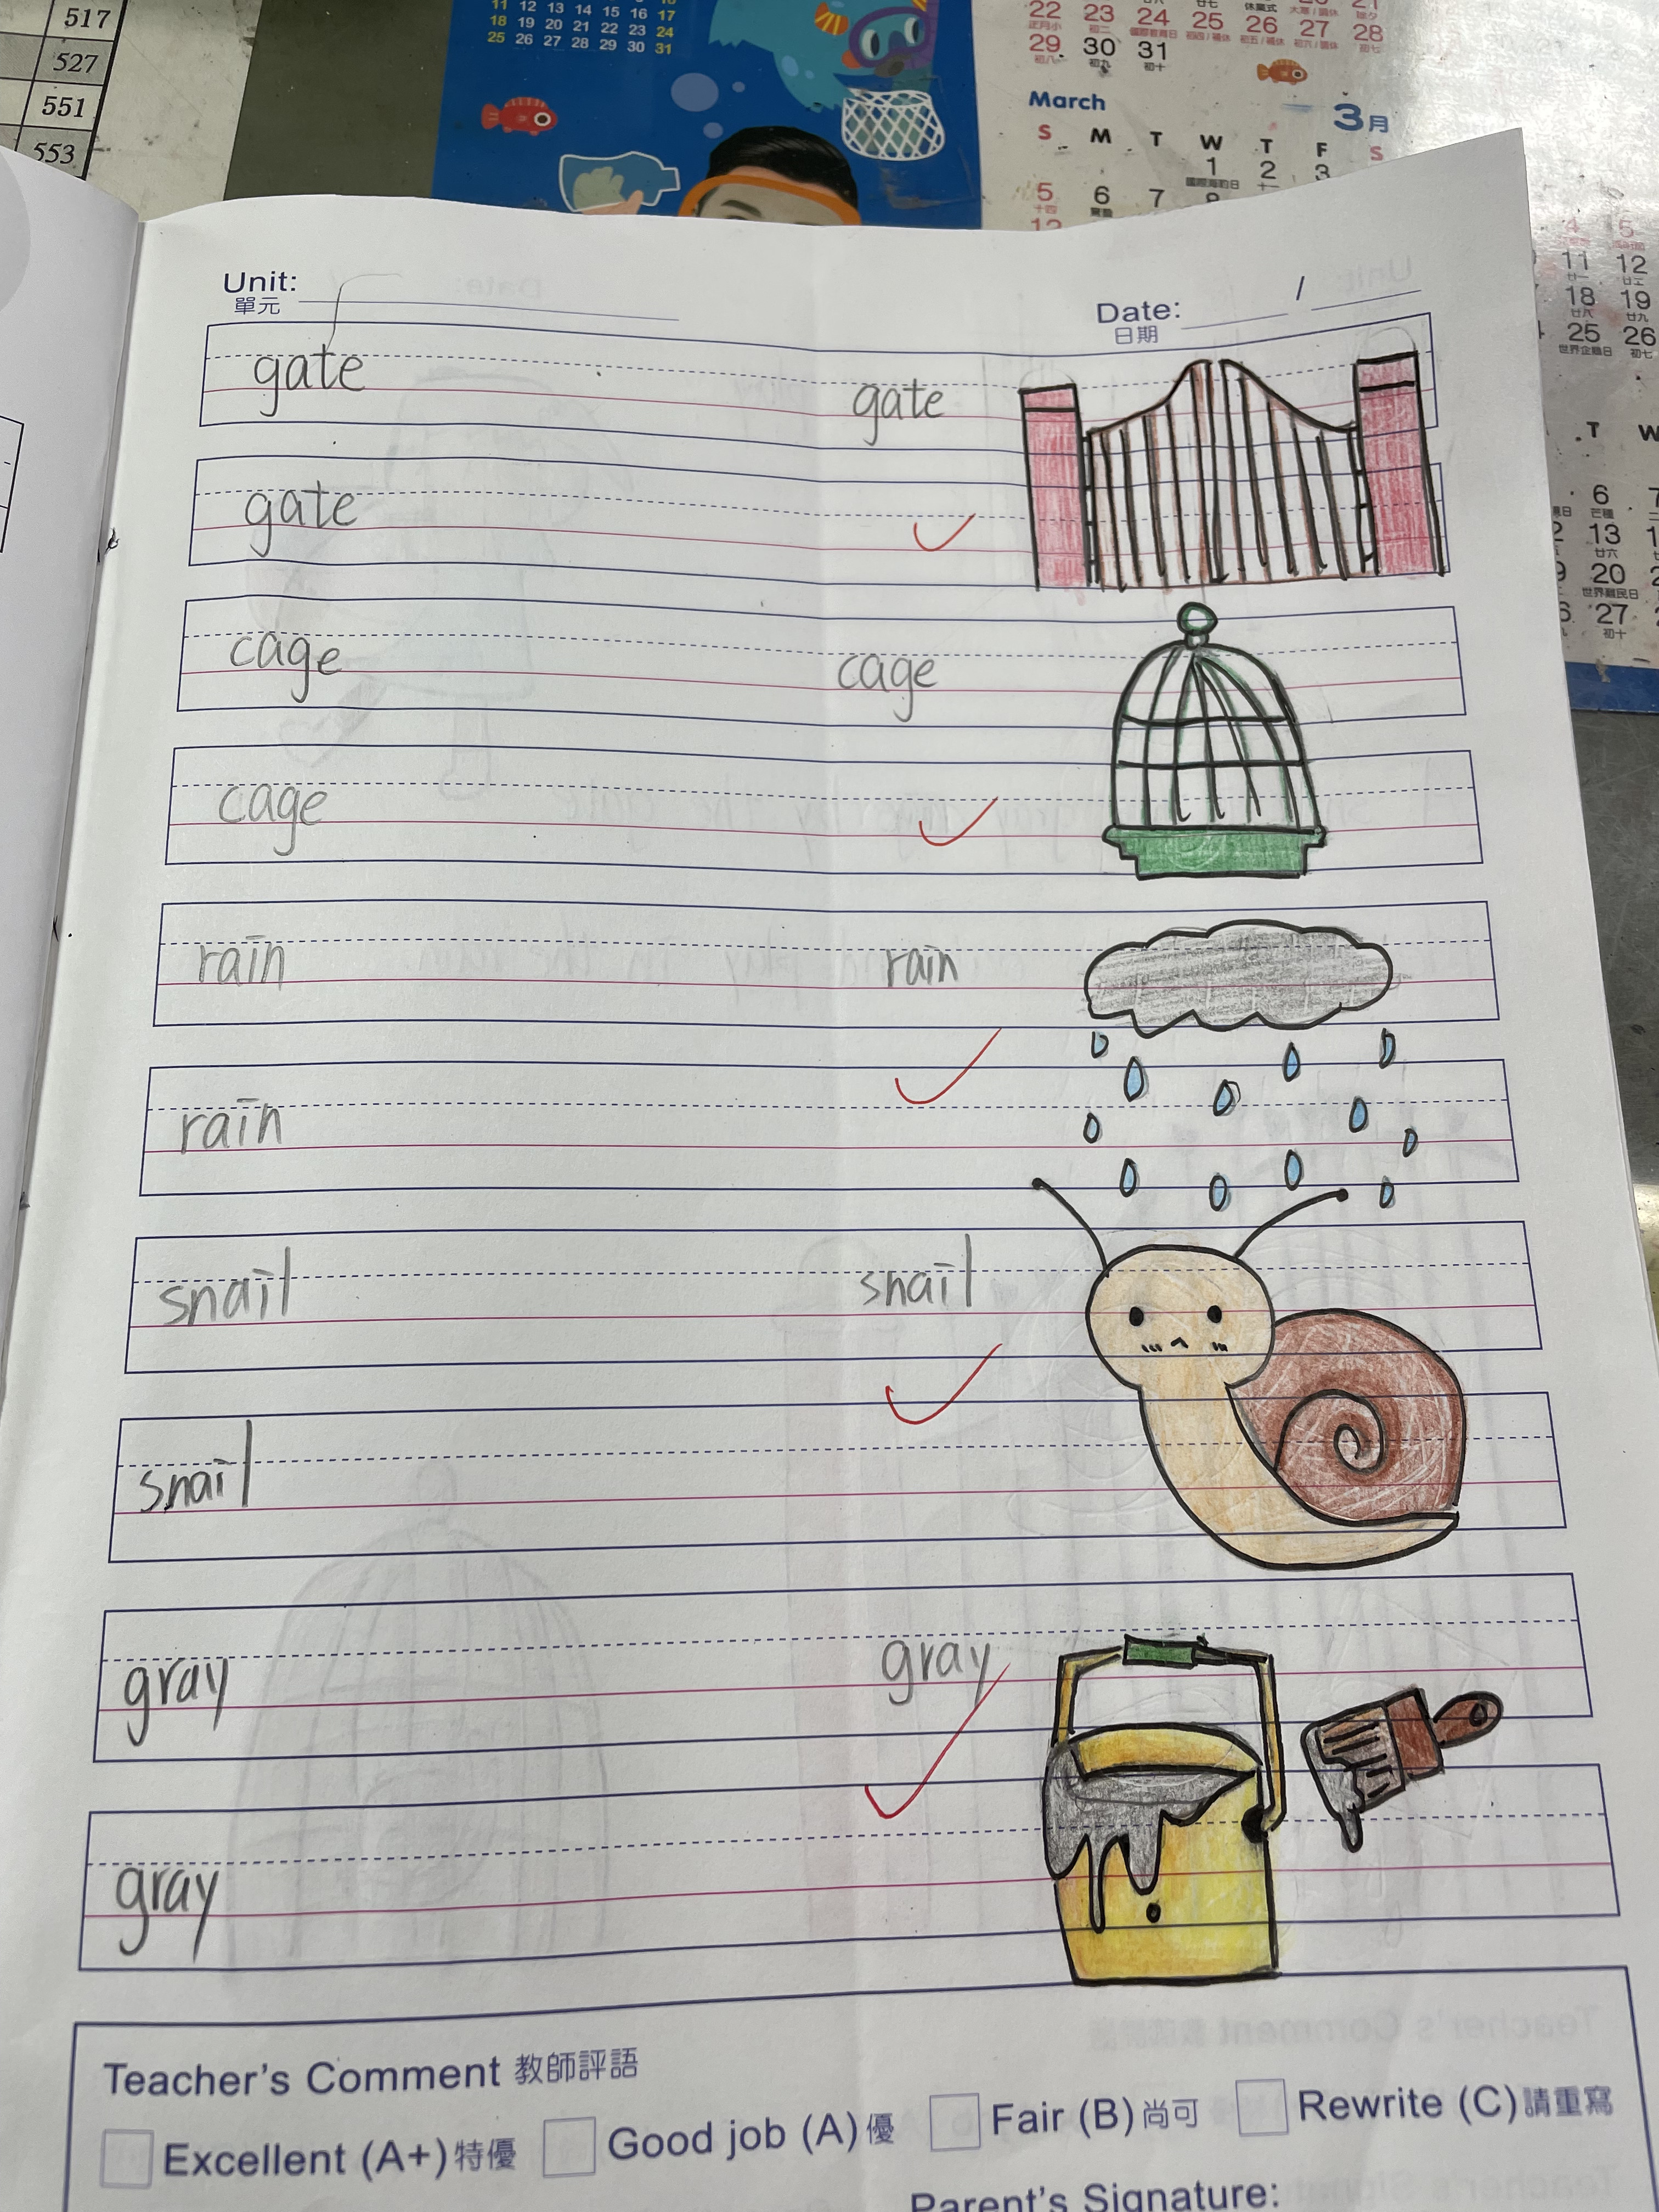 517
527
551
553
11 12 13 14 15 16 17
18 19 20 21 22 23 24
25 26 27 28 29 30 31
22 23 24 25 26 27 28
29 30 31
初八 初九 初十
March 3月
S M T W T F S
1 2 3
5 6 7
十四
12
4 5
11 12
18 19
廿八 廿九
25 26
初七
T W
6 7
芒種
13
廿六
20
世界難民日
27
初十
Unit:
單元
Date: /
日期
gate gate
gate
cage cage
cage
rain rain
rain
snail snail
snail
gray gray
gray
Teacher's Comment 教師評語
Excellent (A+) 特優 Good job (A) 優 Fair (B) 尚可 Rewrite (C) 請重寫
Parent's Signature: